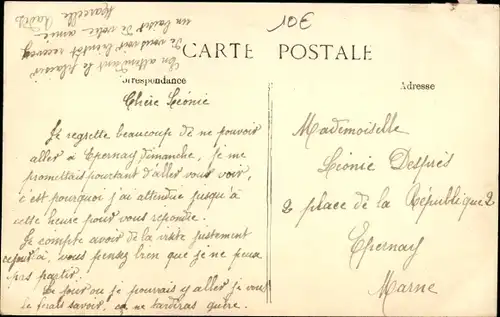 10€
CARTE POSTALE
Correspondance
Adresse
Chère Léonie
Je regrette beaucoup de ne pouvoir
aller à Epernay Dimanche, je me
promettais pourtant d'aller vous voir,
c'est pourquoi j'ai attendue jusqu'à
cette heure pour vous répondre.
Je compte avoir de la visite justement
ce jour à, vous pensez bien que je ne peux
pas partir.
Le jour où je pourrais y aller je vous
le ferais savoir, ça ne tardiras guère.
En attendant le plaisir
de vous voir bientôt recevez
un baiser de votre amie
Marcelle
Mademoiselle
Léonie Després
2 place de la République 2
Epernay
Marne